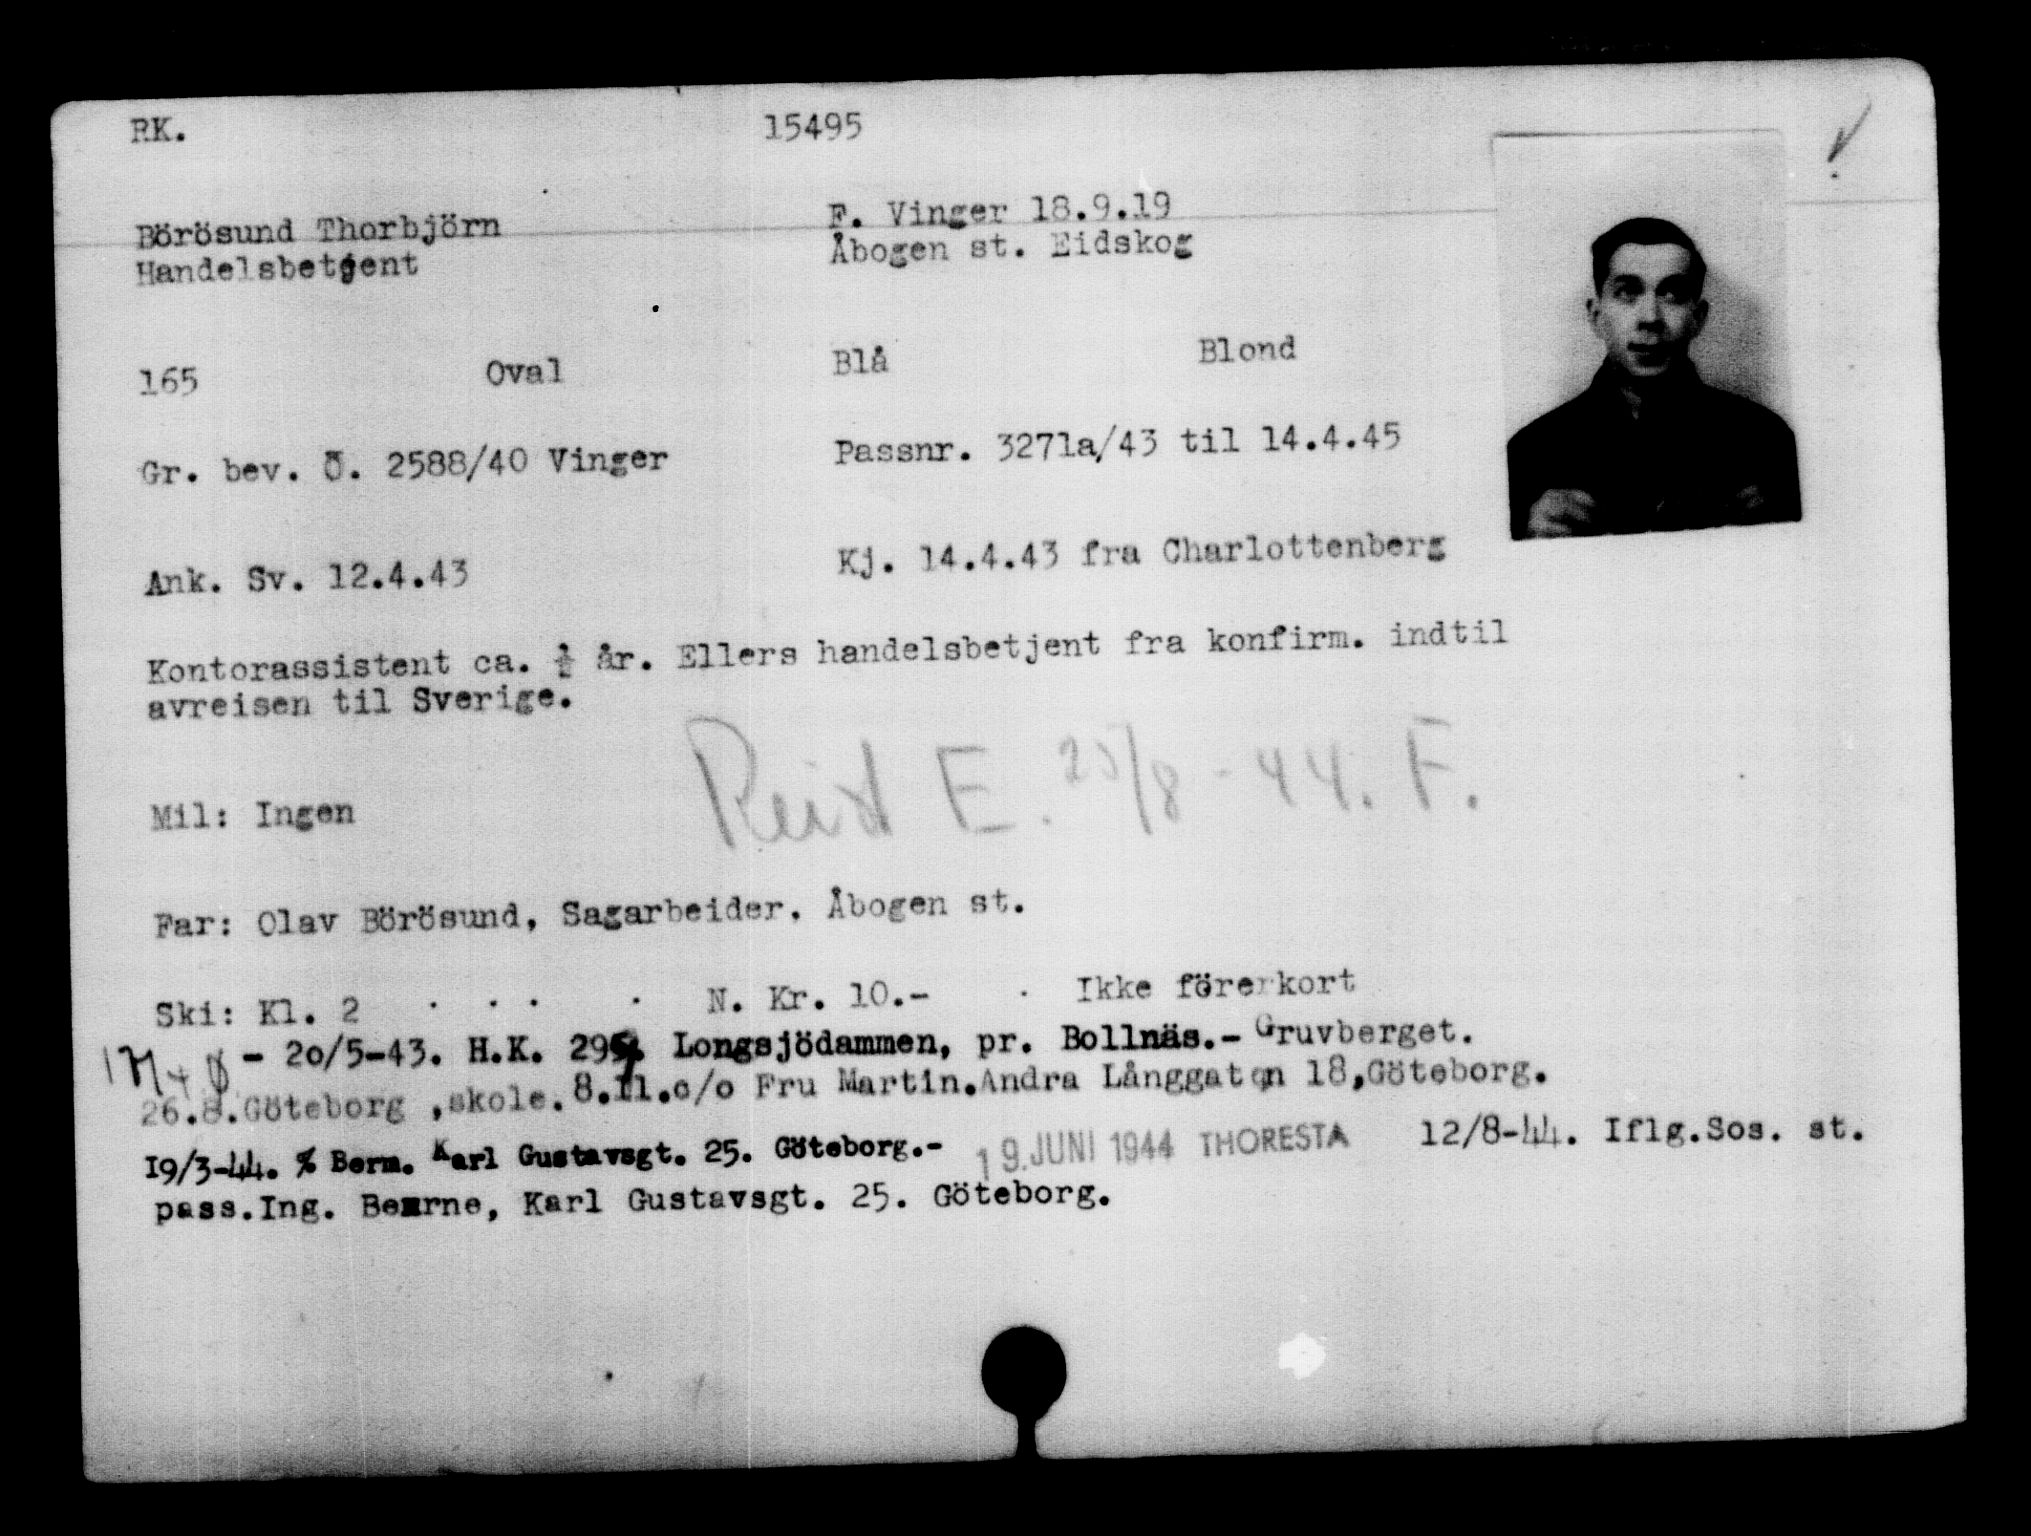 RK. 15495
Börösund Thorbjörn F. Vinger 18.9.19
Handelsbetjent Åbogen st. Eidskog
165 Oval Blå Blond
Gr. bev. Ö. 2588/40 Vinger Passnr. 3271a/43 til 14.4.45
Ank. Sv. 12.4.43 Kj. 14.4.43 fra Charlottenberg
Kontorassistent ca. ½ år. Ellers handelsbetjent fra konfirm. indtil
avreisen til Sverige.
Reist E. /8-44. F.
Mil: Ingen
Far: Olav Börösund, Sagarbeider, Åbogen st.
Ski: Kl. 2 N. Kr. 10.- Ikke förerkort
- 20/5-43. H.K. Longsjödammen, pr. Bollnäs.- Gruvberget.
26.8.Göteborg ,skole. 8.11.c/o Fru Martin.Andra Långgatan 18,Göteborg.
19/3-44. % Bern. Karl Gustavsgt. 25. Göteborg.- 19.JUNI 1944 THORESTA 12/8-44. Iflg.Sos. st.
pass.Ing. Bearne, Karl Gustavsgt. 25. Göteborg.